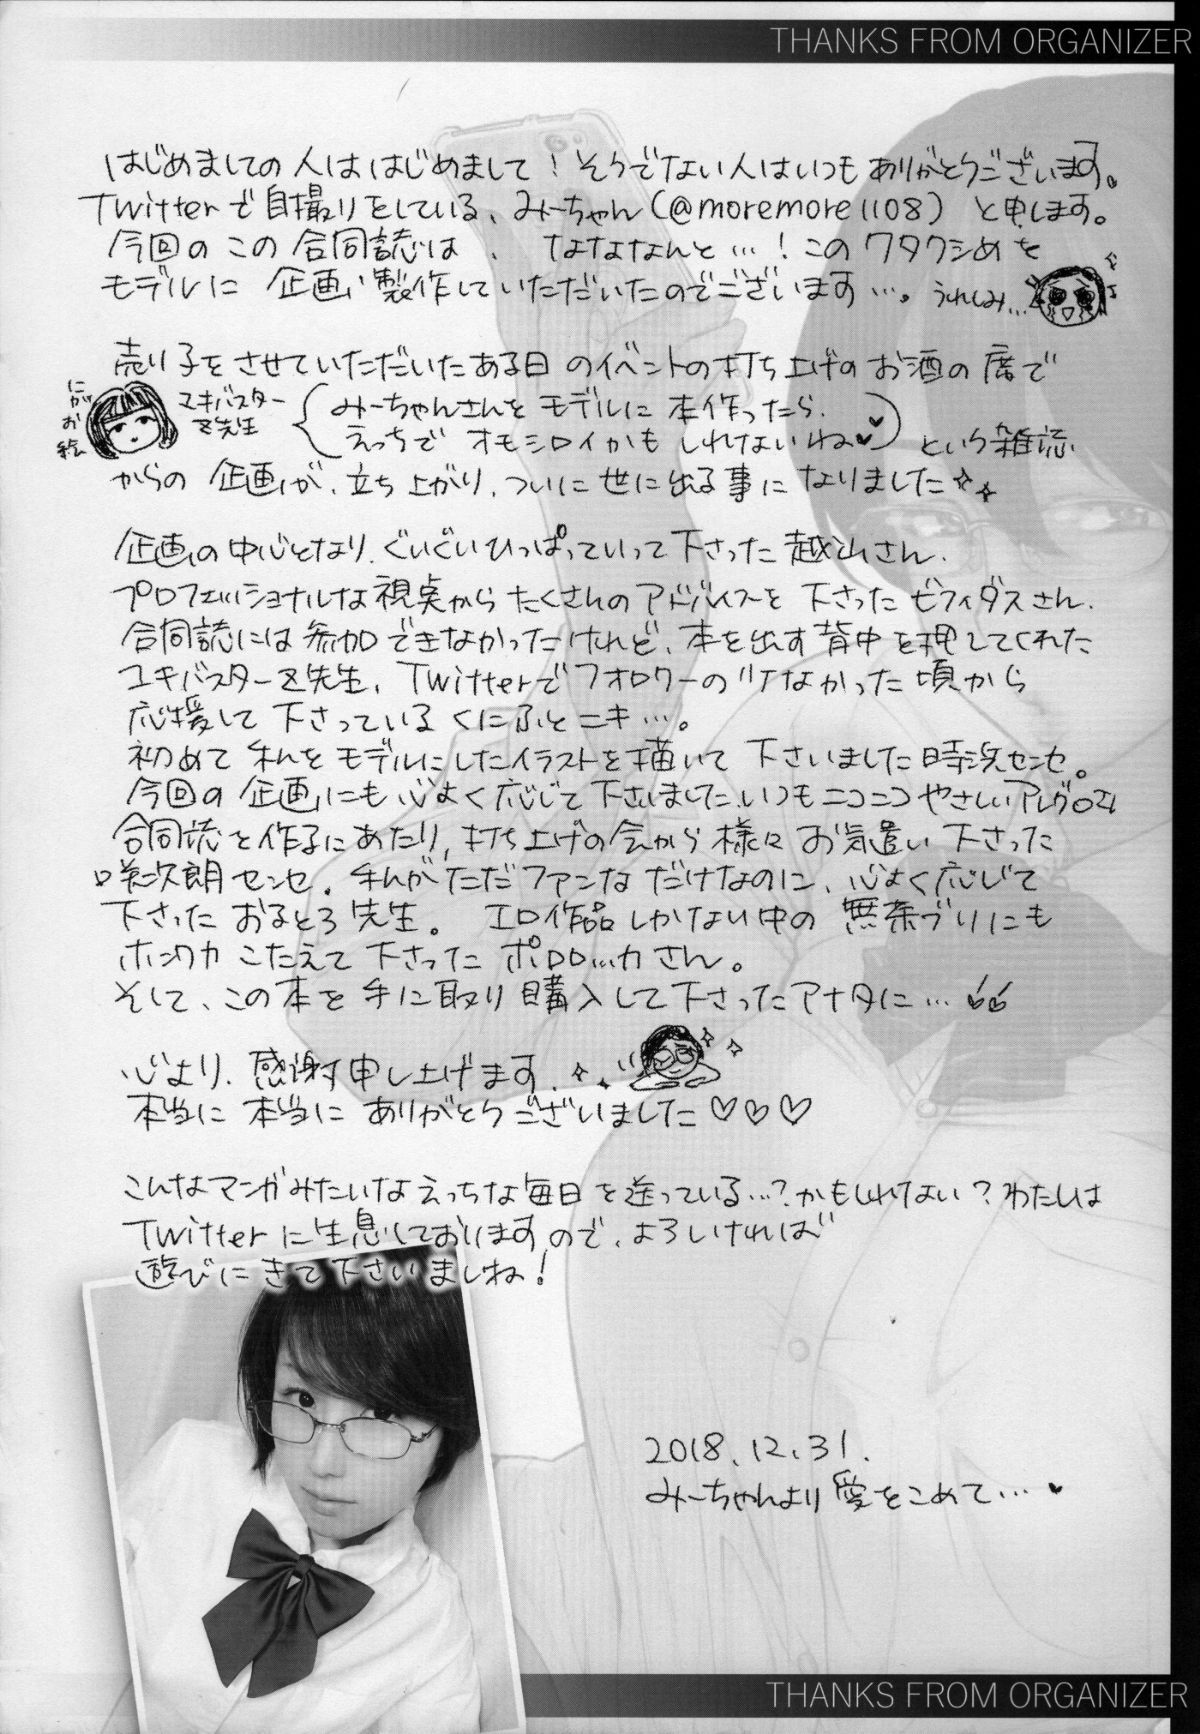 THANKS FROM ORGANIZER
はじめましての人ははじめまして！そうでない人はいつもありがとうございます。
Twitterで自撮りをしている、みーちゃん(@moremore1108) と申します。
今回のこの合同誌は、なななんと…！このワタクシめを
モデルに企画、製作していただいたのでございます…。うれしみ…
売り子をさせていただいたある日のイベントの打ち上げのお酒の席で
にがお絵
マキバスターZ先生
みーちゃんさんをモデルに本作ったら、
えっちでオモシロイかもしれないわね♥♥
という雑談
からの企画が、立ち上がり、ついに世に出る事になりました✧✧
企画の中心となり、ぐいぐいひっぱっていって下さった越山さん、
プロフェッショナルな視点からたくさんのアドバイスを下さったビフィダスさん、
合同誌には参加できなかったけれど、本を出す背中を押してくれた
ユキバスターZ先生、Twitterでフォロワーのいなかった頃から
応援して下さっているくにふとニキ…。
初めて私をモデルにしたイラストを描いて下さいました時浜センセ。
今回の企画にも心よく応じて下さいました、いつもニコニコやさしい
合同誌を作るにあたり、打ち上げの会から様々お気遣い下さった
咲次朗センセ。私がただファンなだけなのに、心よく応じて
下さったおるとろ先生。エロ作品しかない中の無茶ブリにも
ホンワカこたえて下さったポロロッカさん。
そして、この本を手に取り購入して下さったアナタに…
心より、感謝申し上げます、✧✧
本当に本当にありがとうございました♡♡♡
こんなマンガみたいなえっちな毎日を送っている…？かもしれない？わたしは
Twitterに生息しておりますので、よろしければ
遊びにきて下さいましね！
2018.12.31.
みーちゃんより愛をこめて…♥
THANKS FROM ORGANIZER